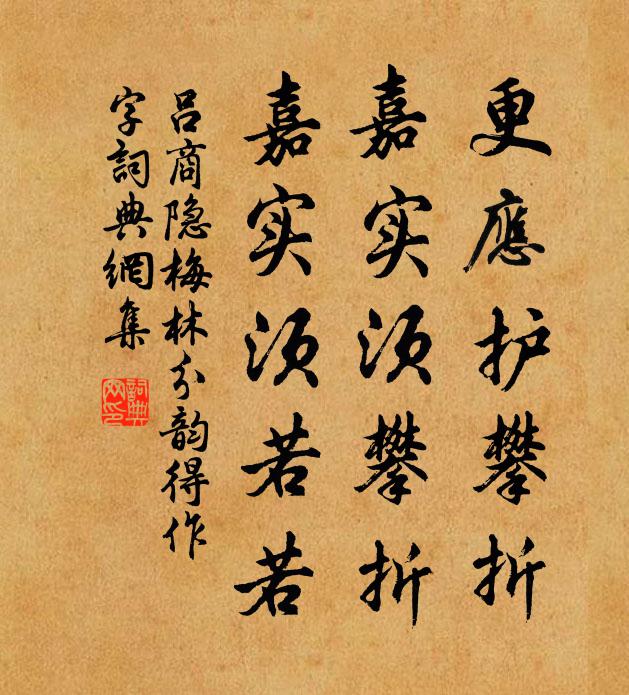 更應护攀折
嘉实须攀折
嘉实须若若
吕商隐梅林分韵得作
字詞典網集
詞典网印